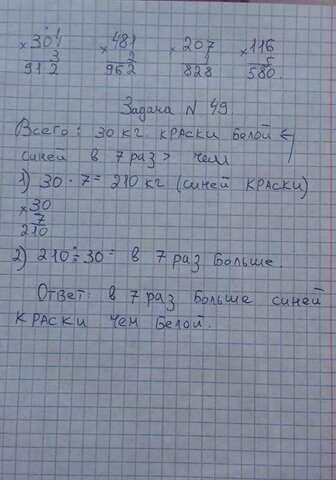 ×304 ×481 ×207 ×116
3 2 4 5
912 962 828 580
Задача N 49
Всего: 30 кг краски белой
синей в 7 раз > чем
1) 30 · 7 = 210 кг (синей краски)
×30
7
210
2) 210 : 30 = в 7 раз больше.
Ответ: в 7 раз больше синей
краски чем белой.